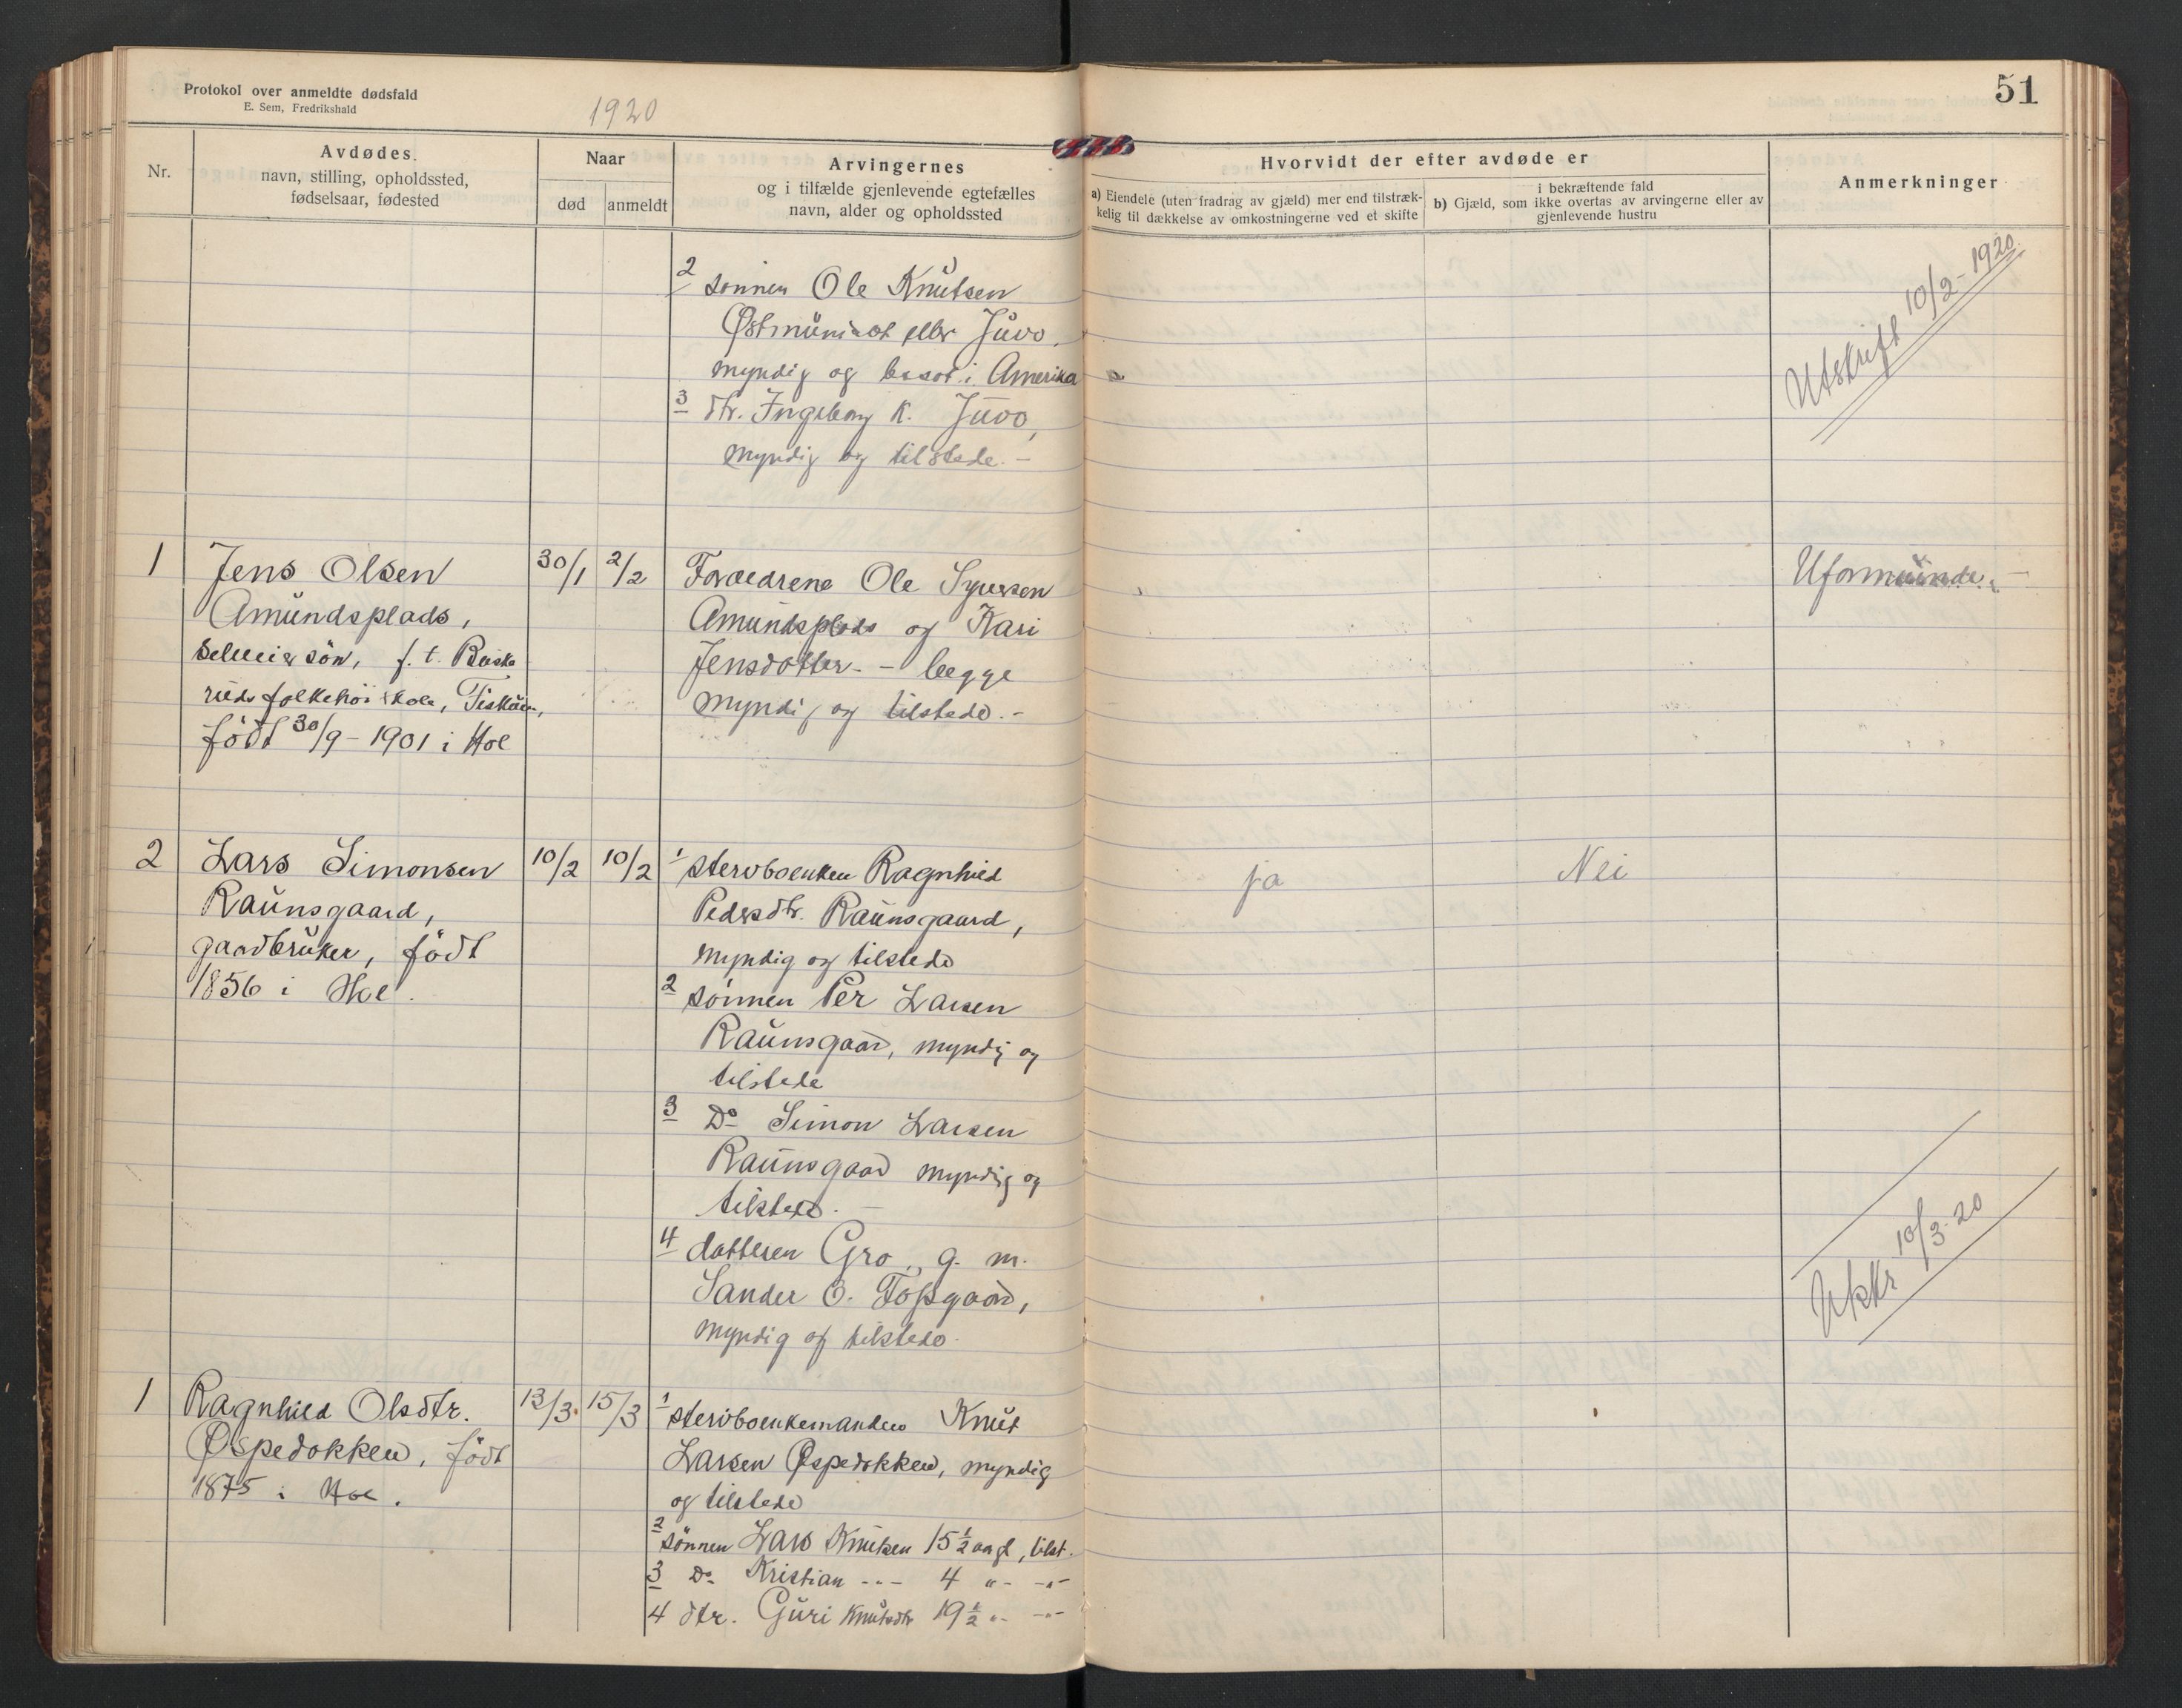 Protokol over anmeldte dødsfald
E. Sem, Fredrikshald
1920
51
Nr.
Avdødes
navn, stilling, opholdssted,
fødselsaar, fødested
Naar
død
anmeldt
Arvingernes
og i tilfælde gjenlevende egtefælles
navn, alder og opholdssted
Hvorvidt der efter avdøde er
a) Eiendele (uten fradrag av gjæld) mer end tilstræk-
kelig til dækkelse av omkostningerne ved et skifte
i bekræftende fald
b) Gjæld, som ikke overtas av arvingerne eller av
gjenlevende hustru
Anmerkninger
2 sønnen Ole Knutsen
eller Juvo,
myndig og bosat i Amerika
3 dtr. Ingeborg K. Juvo,
myndig og tilstede. -
Utskrift 10/2 - 1920.
1 Jens Olsen
Amundsplads,
søn, f. t. Buske
ruds folkehøiskole,
født 30/9 - 1901 i Hol
30/1
2/2
Forældrene Ole Syversen
Amundsplads og Kari
Jensdotter - - begge
myndig og tilstede. -
Uformuende. -
2 Lars Simonsen
Raunsgaard,
gaardbruker, født
1856 i Hol.
10/2
10/2
1 stervboenken Ragnhild
Pedersdtr. Raunsgaard,
myndig og tilstede
2 sønnen Per Larsen
Raunsgaard, myndig og
tilstede
3 Do Simon Larsen
Raunsgaard myndig og
tilstede. -
4 datteren Gro, g. m.
Sander O. Tofsgaard,
myndig og tilstede.
ja
Nei
Utskr 10/3-20
1 Ragnhild Olsdtr.
Øspedokken, født
1875 i Hol.
13/3
15/3
1 stervboenkemanden Knut
Larsen Øspedokken, myndig
og tilstede
2 sønnen Lars Knutsen 15 1/2 aar gl, tilst.
3 Do Kristian -"- 4 "- -"-
4 dtr. Guri Knutsdtr 19 1/2 "- -"-